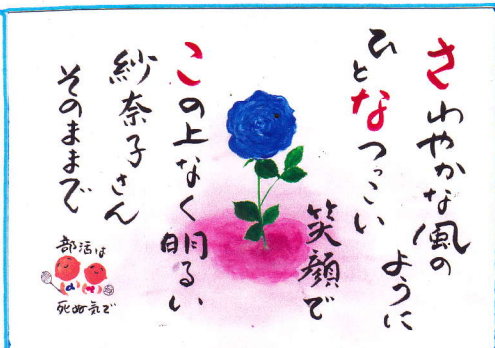 さわやかな風の
ように
ひとなつっこい
笑顔で
この上なく明るい
紗奈子さん
そのままで
部活は
死ぬ気で